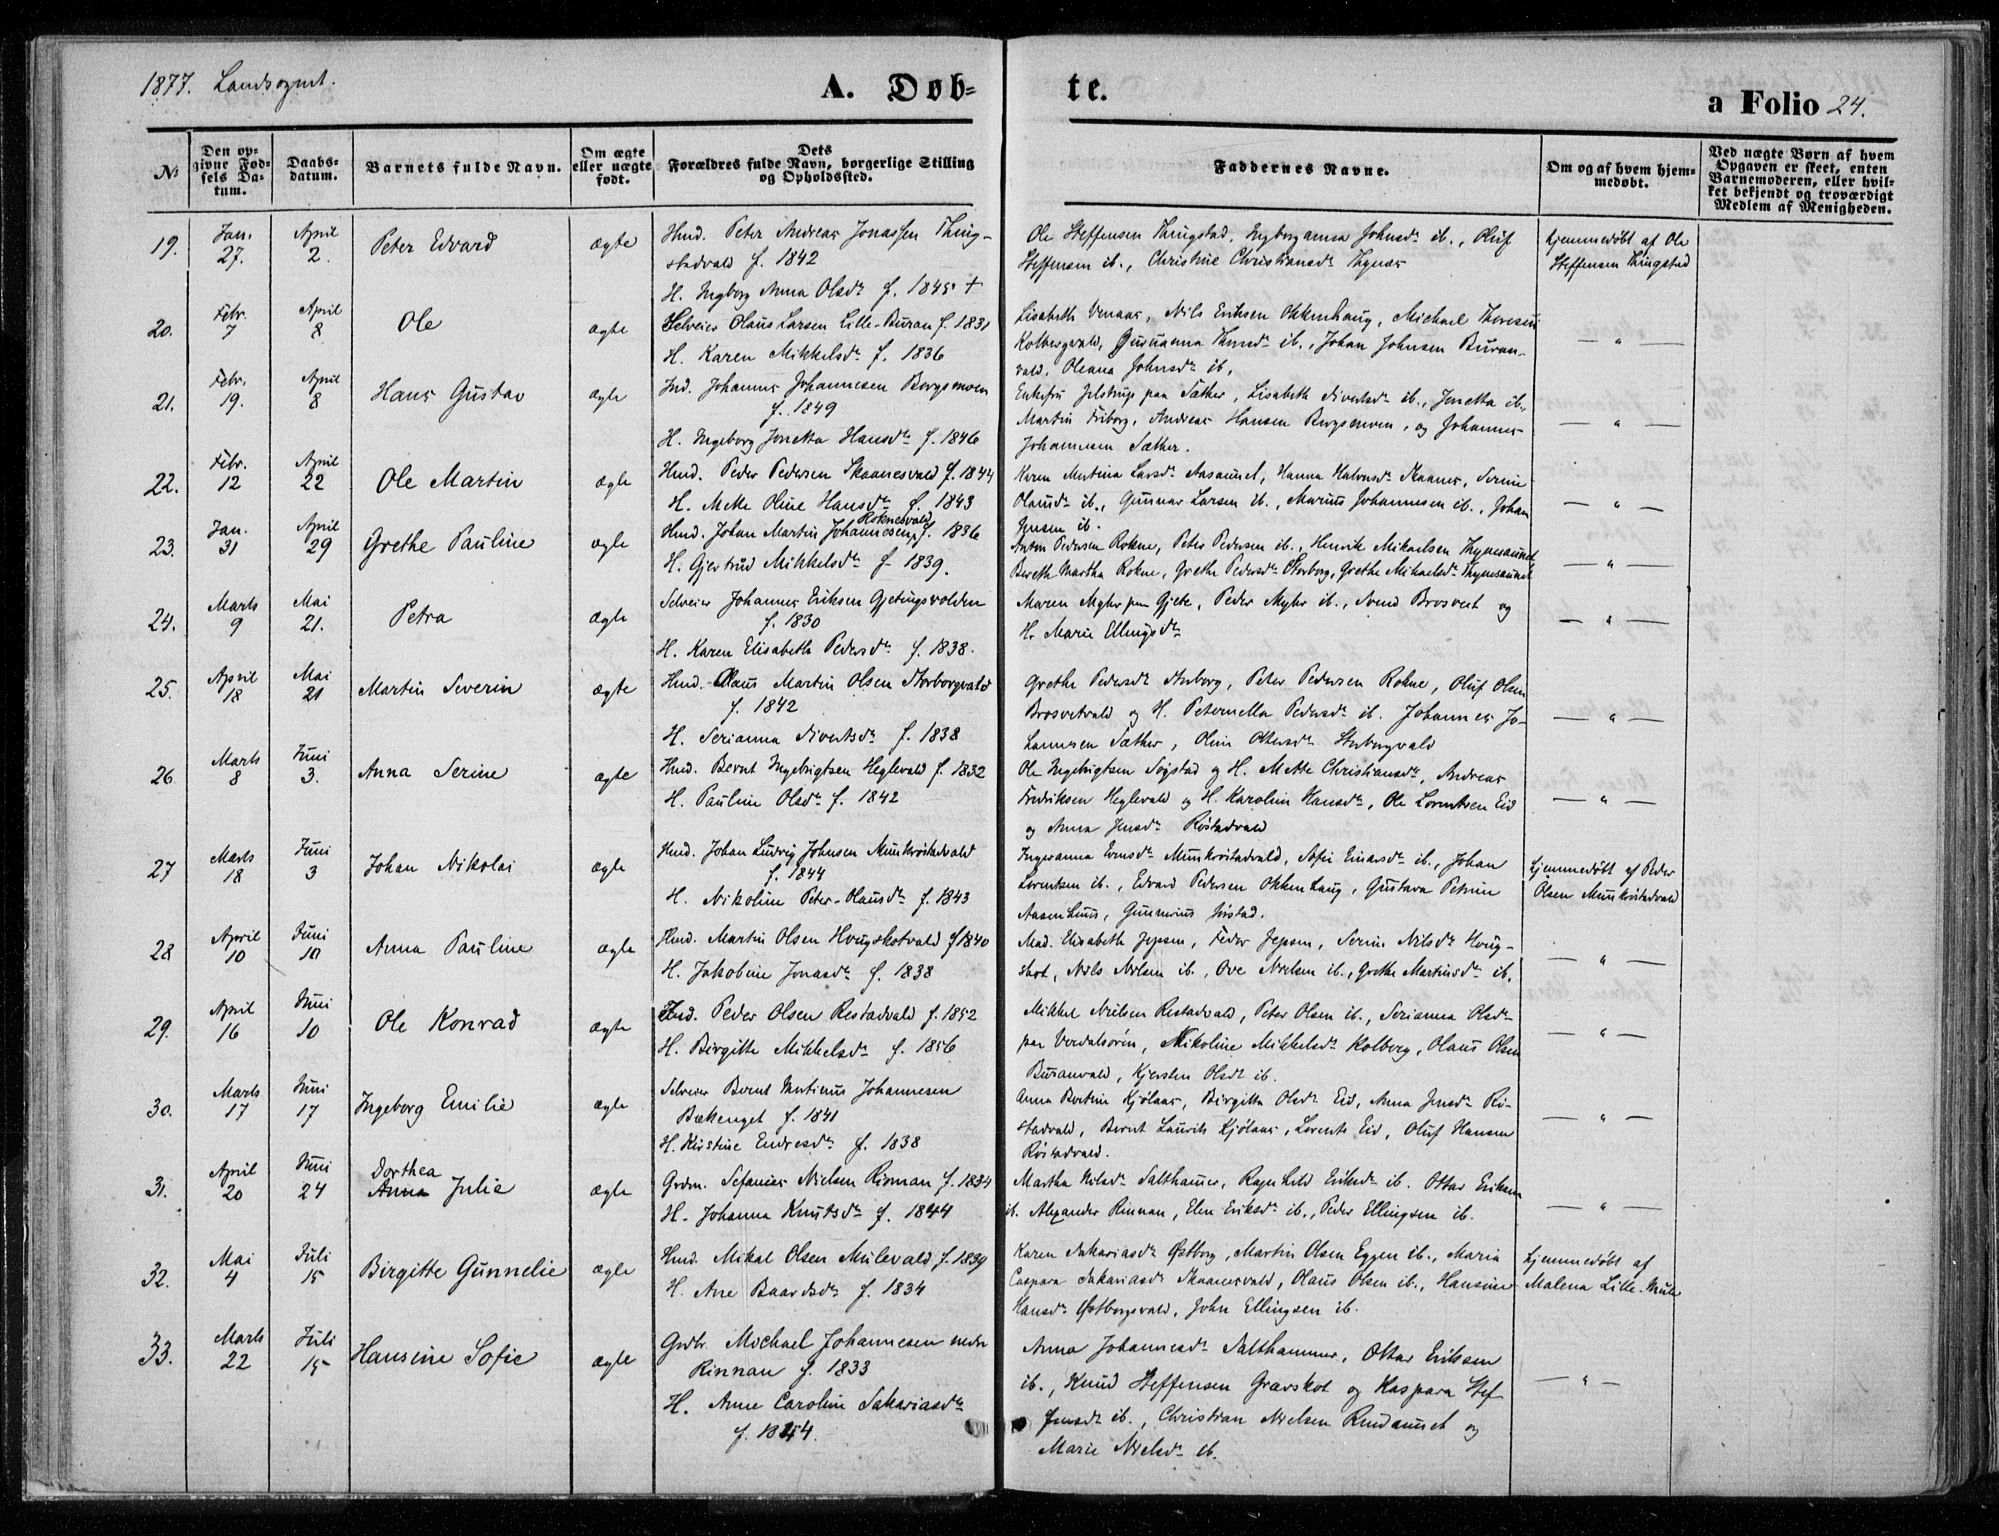 1877. Landsognet.
A. Døb-
te.
a Folio 24.
No
Den op-
givne Fød-
sels Da-
tum.
Daabs-
datum.
Barnets fulde Navn.
Om ægte
eller uægte
født.
Dets
Forældres fulde Navn, borgerlige Stilling
og Opholdssted.
Faddernes Navne.
Om og af hvem hjem-
medøbt.
Ved uægte Børn af hvem
Opgaven er skeet, enten
Barnemoderen, eller hvil-
ket bekjendt og troværdigt
Medlem af Menigheden.
19. Jan. 27. April 2. Peter Edvard ægte
Hmd. Peter Andreas Jonassen Thing-
stadvald f. 1842
H. Ingborg Anna Olsdr f. 1845 +
Ole Steffensen Thingstad, Ingborganna Johnsdr ib., Oluf
Steffensen ib., Christine Christiansdr Thynæs
hjemmedøbt af Ole
Steffensen Thingstad
20. Febr. 7 April 8 Ole ægte
Selveier Olaus Larsen Lille-Buran f. 1831
H. Karen Mikkelsdr f. 1836
Lisabeth Vinaas, Nils Eriksen Okkenhaug, Michael Thoresen
Kolbergvald, Thmsdr ib., Johan Johnsen Buran-
vald, Oleana Johnsdr ib,
— " —
21. Febr. 19. April 8 Hans Gustav ægte
Ind. Johannes Johannesen Borgsmoen
f. 1849
H. Ingeborg Jonetta Hansdr f. 1846
Enkefru Jelstrup paa Sæther, Lisabeth Sivertsdr ib., Jonetta ib.,
Martin Friborg, Andreas Hansen Borgsmoen, og Johannes
Johannesen Sæther.
— " —
22. Febr. 12 April 22 Ole Martin ægte
Hmd. Peder Pedersen Skaanesvald f. 1844
H. Mette Oline Hansdr f. 1843
Karen Martina Larsdr Aasaunet, Hanna Halvorsdr Skaanes, Serine
Olausdr ib., Gunnar Larsen ib., Marius Johannesen ib., Johan
Jensen ib.
— " —
23. Jan. 31 April 29 Grethe Pauline ægte
Roknesvald
Hmd. Johan Martin Johannesen, f. 1836
H. Gjertrud Mikkelsdr f 1839.
Anton Pedersen Rokne, Peter Pedersen ib., Henrik Mikaelsen Thynesaunet
Bereth Martha Rokne, Grethe Pedersdr Storborg, Grethe Mikaelsdr Thynesaunet
— " —
24. Marts 9 Mai 21. Petra ægte
Selveier Johannes Eriksen Gjetingsvolden
f. 1830
H. Karen Elisabeth Pedersdr f. 1838.
Maren Myhr paa Gjete, Peder Myhr ib., Svend Brosvet og
H. Marie Ellingsdr
— " —
25. April 18 Mai 21 Martin Severin ægte
Hmd. Olaus Martin Olsen Storborgvald
f. 1842
H. Serianna Sivertsdr f. 1838
Grethe Pedersdr Storborg, Peter Pedersen Rokne, Oluf Olsen
Brosvetvald og H. Peternella Pedersdr ib. Johannes Jo-
hannesen Sæther, Oline Ottersdr Storborgvald
— " —
26. Marts 8 Juni 3. Anna Serine ægte
Hmd. Bernt Ingebrigtsen Heglevald f. 1832
H. Pauline Olsdr f. 1842
Ole Ingebrigtsen Søgstad og H. Mette Christiansdr, Andreas
Fredriksen Heglevald og H. Karoline Hansdr, Ole Lorentsen Eid
og Anna Jensdr Røstadvald
— " —
27 Marts 18 Juni 3 Johan Nikolai ægte
Hmd. Johan Ludvig Johnsen Munkrøstadvald
f. 1844
H. Nikoline Peter-Olausdr f. 1843
Ingeranna Evensdr Munkrøstadvald, Sofie Einarsdr ib., Johan
Lorentsen ib., Edvard Pedersen Okkenhaug, Gustava Petrine
Aasenhuus, Gunnerius Jøstad.
hjemmedøbt af Peder
Olsen Munkrøstadvald
28 April 10 Juni 10 Anna Pauline ægte
Hmd. Martin Olsen Hougskotvald f 1840
H. Jakobine Jonasdr f. 1838
Mad. Elisabeth Jepsen, Peder Jepsen, Serine Nilsdr Houg-
skot, Nils Nielsen ib., Ove Nielsen ib., Grethe Martinsdr ib.
— " —
29. April 16 Juni 10 Ole Konrad ægte
Ind. Peder Olsen Restadvald f. 1852
H. Birgitte Mikkelsdr f. 1856
Mikkel Nielsen Restadvald, Peter Olsen ib., Serianna Olsdr
paa Verdalsøren, Nikoline Mikkelsdr Kolberg, Olaus Olsen
Buranvald, Kjersten Olsdr ib.
— " —
30. Marts 17 Juni 17 Ingeborg Emilie ægte
Selveier Bernt Martinus Johannesen
Bækenget f. 1841
H. Kirstine Endresdr f. 1838
Anna Bertine Kjølaas, Birgitta Olsdr Eid, Anna Jensdr Rø-
stadvald, Bernt Laurits Kjølaas, Lorents Eid, Oluf Hansen
Røstadvald.
— " —
31. April 20 Juni 24 Dorthea
Anna Julie ægte
Grdm. Sefanias Nielsen Rinnan f. 1834
H. Johanna Knutsdr f. 1844
Martha Nilsdr Salthamer, Ragnhild Eriksdr ib. Ottar Eriksen
ib. Alexander Rinnan, Elen Eriksdr ib., Peder Ellingsen ib.
— " —
32. Mai 4 Juli 15 Birgitte Gunnelie ægte
Hmd. Mikal Olsen Mulevald f. 1839
H. Ane Baardsdr f. 1834
Karen Sakariasdr Østborg, Martin Olsen Eggen ib., Maria
Caspara Sakariasdr Skaanesvald, Olaus Olsen ib., Hansine
Hansdr Østborgsvald, John Ellingsen ib.
hjemmedøbt af
Malena Lille-Mule
33. Marts 22 Juli 15 Hansine Sofie ægte
Grdbr. Michael Johannesen nedre
Rinnan f. 1833
H. Anne Caroline Sakariasdr
f. 1844.
Anna Johannesdr Salthammer, Ottar Eriksen
ib., Knud Steffensen Gravskot og Kaspara Stef-
fensdr ib., Christian Nielsen Rindaunet og
Marie Nielsdr ib.
— " —